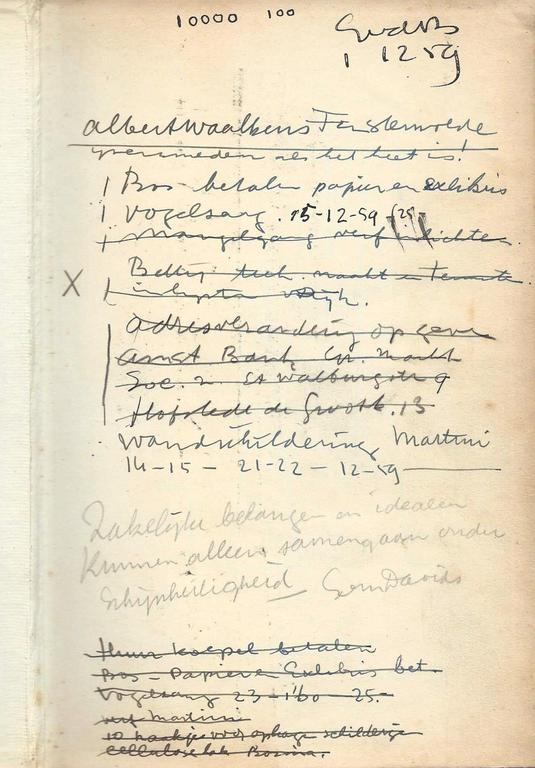 10000 100
1 12 59
albert waalkens Finsterwolde
als het heet is!
Bos betalen papier en exlibris
Vogelsang. 15-12-59 (25)
verf
Betty tech. naakt en
adresverandering opgeven
Amst Bank Gr. Markt
Soc. St Walburgstr 9
Hofstede de Groot k. 13
Wandschildering Martini
14-15 - 21-22 - 12-59
Zakelijke belangen en idealen
kunnen alleen samengaan onder
schijnheiligheid Gem Davids
Huur koepel betalen
Bos - Papier en Exlibris bet.
Vogelsang 23-1'60 25.-
verf Martini
10 haakjes voor ophage schilderije
celluloselak Bosma.